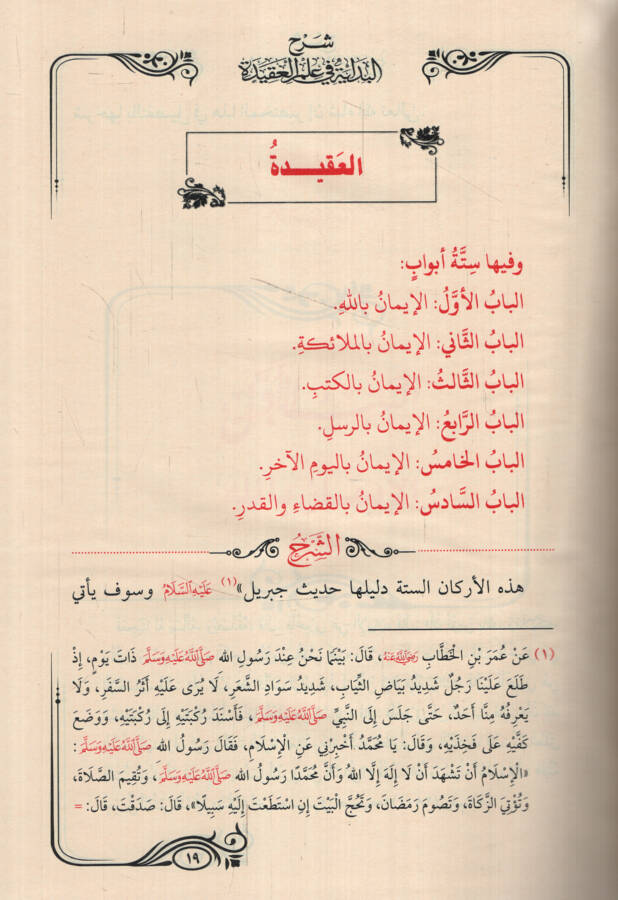 شَرْح
البِدَايَةُ فِي عِلْمِ العَقِيدَةِ
العَقِيـــدةُ
وفيها سِتَّةُ أبوابٍ:
البابُ الأوَّلُ: الإيمانُ باللهِ.
البابُ الثَّاني: الإيمانُ بالملائكةِ.
البابُ الثَّالثُ: الإيمانُ بالكتبِ.
البابُ الرَّابعُ: الإيمانُ بالرسلِ.
البابُ الخامسُ: الإيمانُ باليومِ الآخرِ.
البابُ السَّادسُ: الإيمانُ بالقضاءِ والقدرِ.
الشَّرْحُ
هذه الأركان الستة دليلها حديث جبريل»(١) عَلَيْهِ السَّلَامُ وسوف يأتي
(١) عَنْ عُمَرَ بْنِ الْخَطَّابِ رَضِيَ اللَّهُ عَنْهُ، قَالَ: بَيْنَمَا نَحْنُ عِنْدَ رَسُولِ الله صَلَّى اللَّهُ عَلَيْهِ وَسَلَّمَ ذَاتَ يَوْمٍ، إِذْ
طَلَعَ عَلَيْنَا رَجُلٌ شَدِيدُ بَيَاضِ الثِّيَابِ، شَدِيدُ سَوَادِ الشَّعَرِ، لَا يُرَى عَلَيْهِ أَثَرُ السَّفَرِ، وَلَا
يَعْرِفُهُ مِنَّا أَحَدٌ، حَتَّى جَلَسَ إِلَى النَّبِيِّ صَلَّى اللَّهُ عَلَيْهِ وَسَلَّمَ، فَأَسْنَدَ رُكْبَتَيْهِ إِلَى رُكْبَتَيْهِ، وَوَضَعَ
كَفَّيْهِ عَلَى فَخِذَيْهِ، وَقَالَ: يَا مُحَمَّدُ أَخْبِرْنِي عَنِ الْإِسْلَامِ، فَقَالَ رَسُولُ الله صَلَّى اللَّهُ عَلَيْهِ وَسَلَّمَ:
«الْإِسْلَامُ أَنْ تَشْهَدَ أَنْ لَا إِلَهَ إِلَّا اللهُ وَأَنَّ مُحَمَّدًا رَسُولُ الله صَلَّى اللَّهُ عَلَيْهِ وَسَلَّمَ، وَتُقِيمَ الصَّلَاةَ،
وَتُؤْتِيَ الزَّكَاةَ، وَتَصُومَ رَمَضَانَ، وَتَحُجَّ الْبَيْتَ إِنِ اسْتَطَعْتَ إِلَيْهِ سَبِيلًا»، قَالَ: صَدَقْتَ، قَالَ: =
١٩